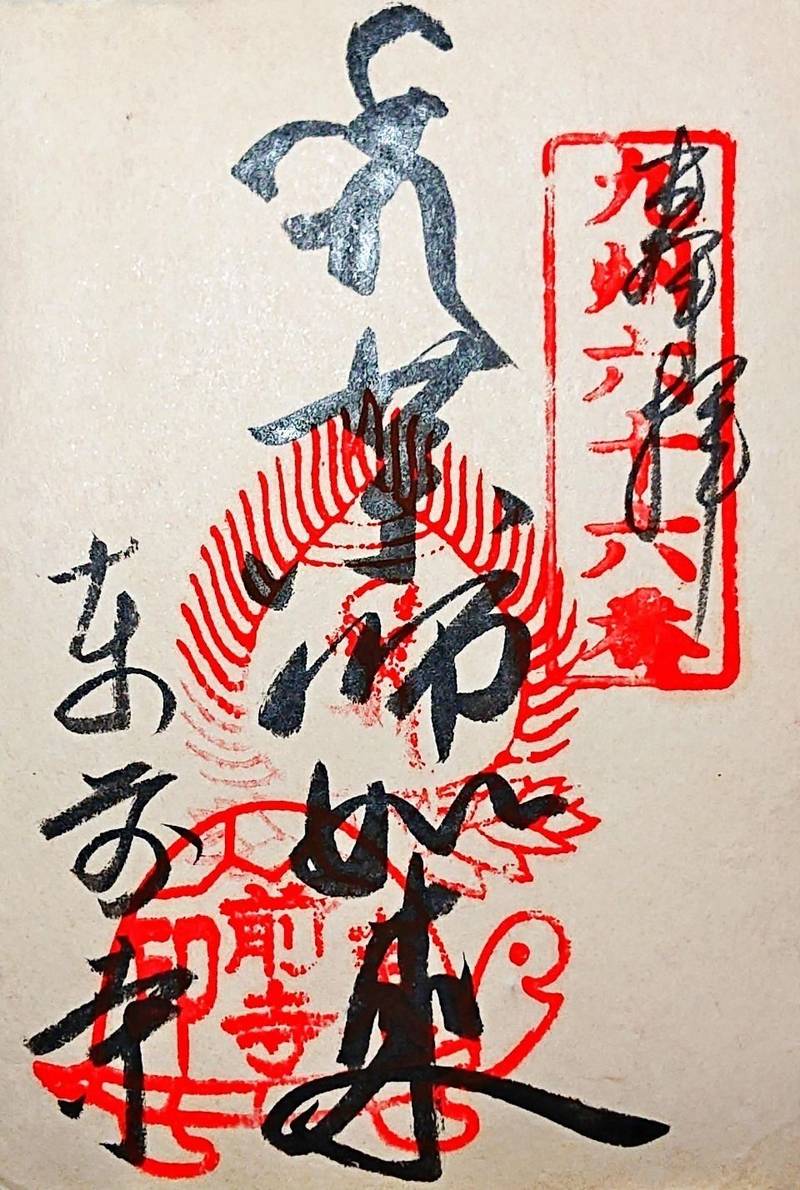 奉拝
九州六十六番
薬師如来
東前寺
前寺
印